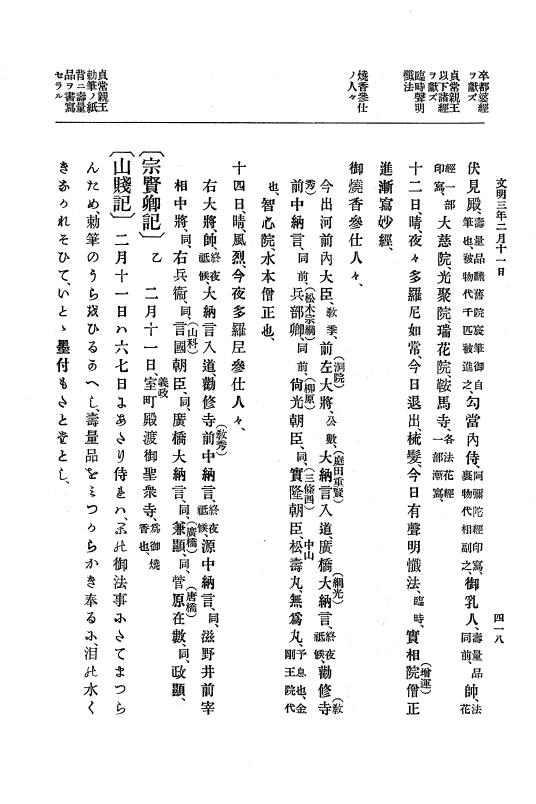 文明三年二月十一日
四一八
卒都婆經
ヲ獻ズ
貞常親王
以下諸經
ヲ獻ズ
臨時聲明
懺法
燒香參仕
ノ人々
貞常親王
勅筆ノ紙
背ニ壽量
品ヲ書寫
セラル
伏見殿、壽量品、議舊院宸筆、御自筆也、被物代千匹被進之、勾當內侍、阿彌陀經印寫、裹物代相副之、御乳人、壽量品同前、帥、法花
經一部印寫、大慈院、光聚院、瑞花院、鞍馬寺、各法花經一部漸寫、
十二日、晴、夜々多羅尼如常、今日退出、梳髮、今日有聲明懺法、臨時、實相院僧正(增運)
進漸寫妙經、
御燒香參仕人々、
今出河前內大臣、敎季、前左大將、公數、(洞院)大納言入道、(庭田重賢)廣橋大納言、(綱光)終夜祗候、勸修寺(敎秀)
前中納言、同前、兵部卿、(松木宗綱)同前、尙光朝臣、(柳原)同、實隆朝臣、(三條西)松壽丸、中山無爲丸、予息也、金剛王院代
也、智心院、水本僧正也、
十四日、晴、風烈、今夜多羅尼參仕人々、
右大將、帥、終夜祗候、大納言入道、勸修寺前中納言、(敎秀)終夜祗候、源中納言、同、滋野井前宰
相中將、同、右兵衞、同、言國朝臣、(山科)同、廣橋大納言、同、兼顯、(廣橋)同、菅原在數、(唐橋)同、政顯、
〔宗賢卿記〕乙 二月十一日、室町殿義政渡御聖衆寺、爲御燒香也、
〔山賤記〕二月十一日ハ六七日にあたり侍れハ、れ此御法事にさてまつら
んため、勅筆のうら伇ひるかへし、壽量品をミつからかき奉るに、泪此水く
きあらそひて、いとゝ墨付もさとゝし、